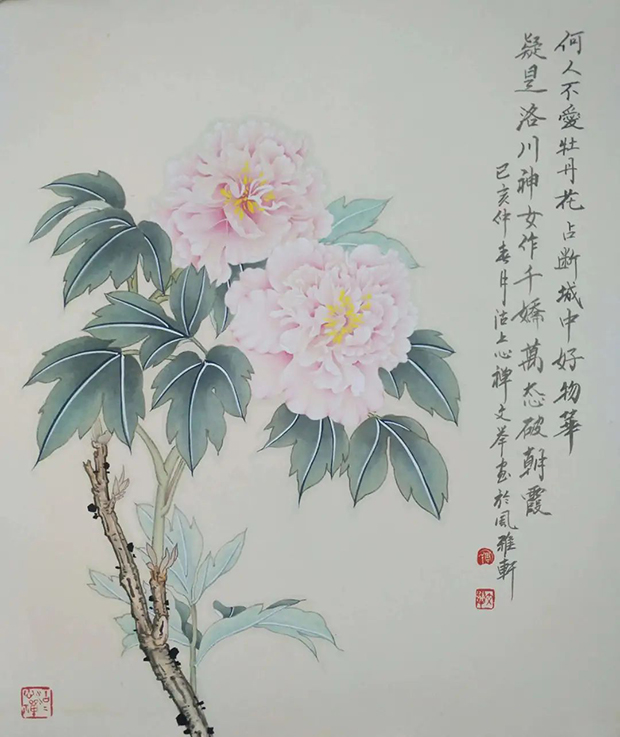 何人不愛牡丹花占断城中好物華
疑是洛川神女作千嬌萬态破朝霞
己亥仲春月沽上心禅文举画於風雅軒